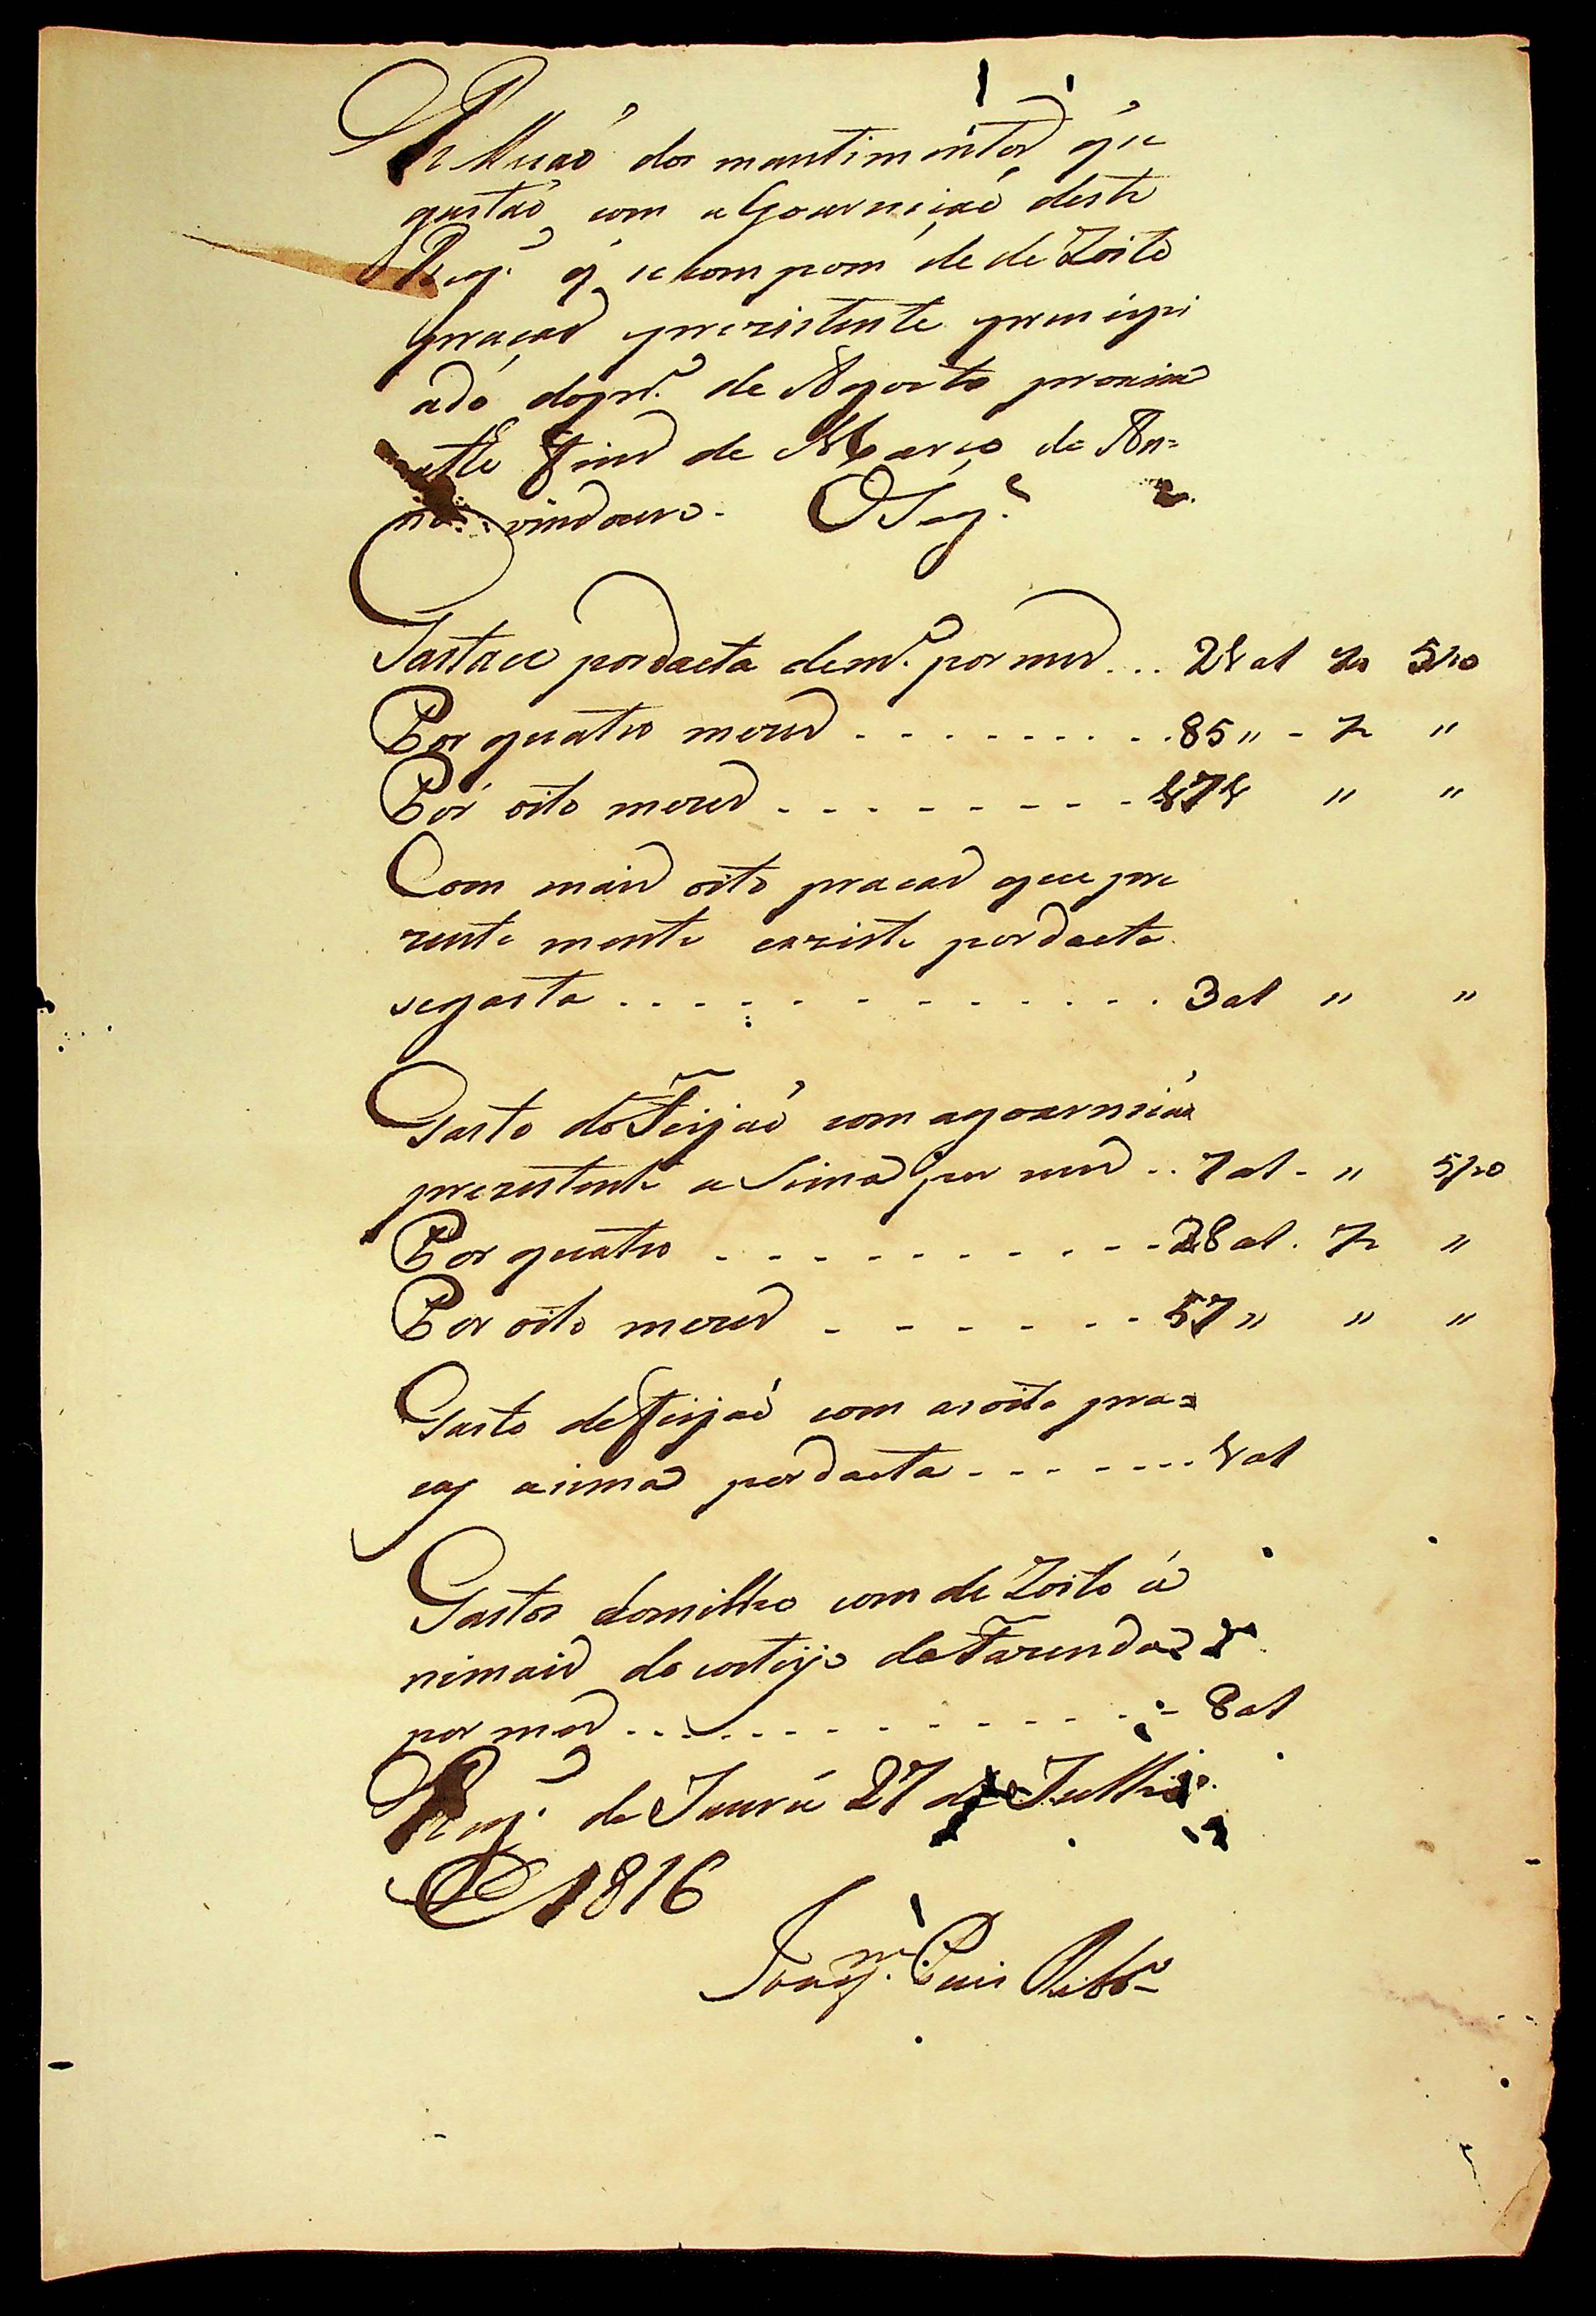 Rellução dos mantimentos q̃ se
gastaõ com a Goarnição deste
Reg.º q̃ se compoin de de Zoito
praças prezistente prencipi
ado do pr.º de Agosto proximo
athe Fins de Março de An=
no vindouro. O Seg.e
Gastace por dacta de m.º por mes ... 21 al 1/2 5/10
Por quatro mezes - - - - - - - - - 85 " - 1/2 "
Por oito mezes - - - - - - - - 171 " "
Com mais oito praças que pre
zente mente exziste por dacta
se gasta - - - - - - - - - - - - 3 al " "
Gasto do Feijaõ com a goarniçaõ
prezistente a Sima por mes - - 7 al - " 5/10
Por quatro - - - - - - - - - - 28 al. 1/2 "
Por oito mezes - - - - - - - 57 " " "
Gasto de Feijaõ com as oito pra=
cas asima por dacta - - - - - - - 1 al
Gastos do milho com de Zoito a
nimais do costejo da Fazenda
por mes - - - - - - - - - - - - - 8 al
Reg.º de Jaurú 27 de Julho
de 1816
Joaq.m Luis Ribr.º